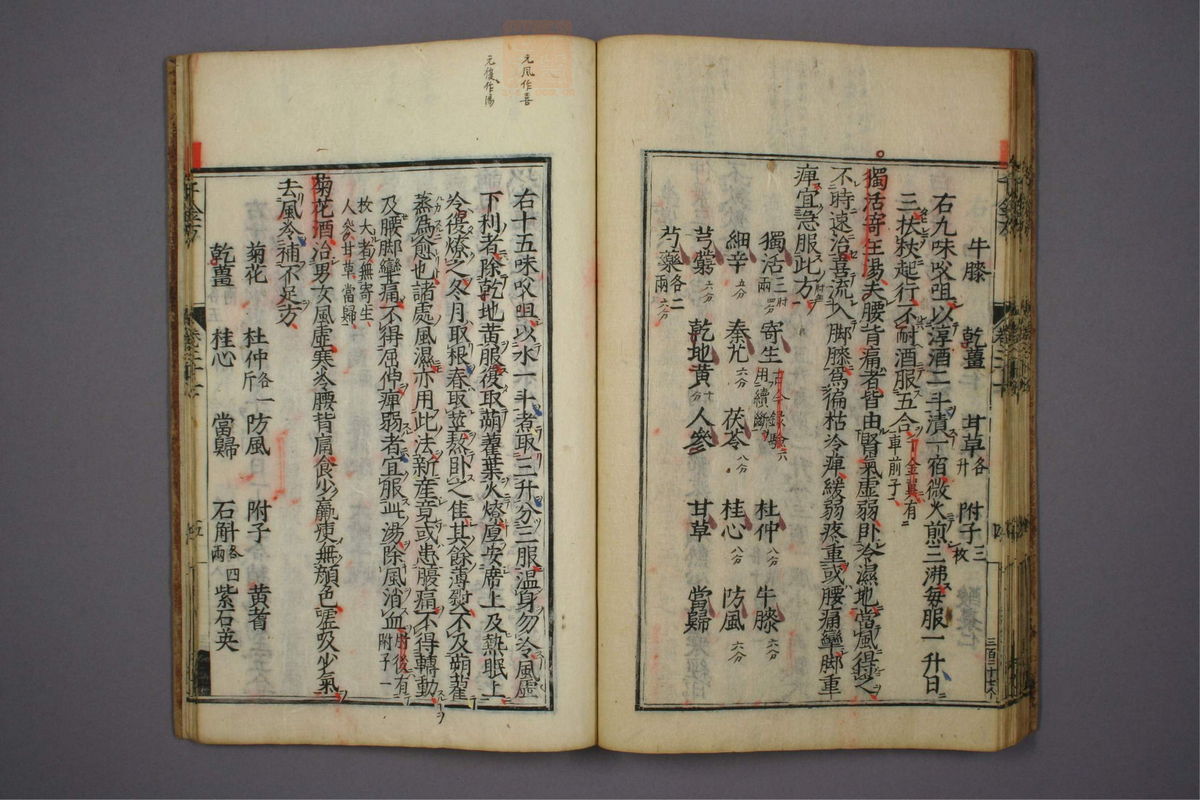 牛膝　乾薑　甘草各升　附子三枚
右九味㕮咀以淳酒二斗漬一宿微火煎三沸每服一升日
三扶杖起行不耐酒服五合千金翼有車前子
獨活寄生湯夫腰背痛者皆由腎氣虛弱臥冷濕地當風得之
不時速治喜流入脚膝爲偏枯冷痺緩弱疼重或腰痛攣脚重
痺宜急服此方
獨活三兩　寄生古今錄驗用續斷　杜仲　牛膝
細辛　秦艽　茯苓　桂心　防風
芎藭　乾地黃　人參　甘草　當歸
芍藥各二兩
右十五味㕮咀以水一斗煮取三升分三服溫身勿冷風虛
下利者除乾地黃服後取蒴藋葉火燎厚安席上及熱眠上
冷復燎之冬月取根春取莖熬臥之佳其餘薄熨不及蒴藋
蒸爲愈也諸處風濕亦用此法新產竟或患腹痛不得轉動
及腰脚攣痛不得屈伸痺弱者宜服此湯除風消血肘後有附子一
枚大者無寄生人參甘草當歸
菊花酒治男女風虛寒冷腰背痛食少羸瘦無顏色噓吸少氣
去風冷補不足方
菊花　杜仲各一斤　防風　附子　黃耆
乾薑　桂心　當歸　石斛各四兩　紫石英
元風作喜
元復作湯
三百二十七